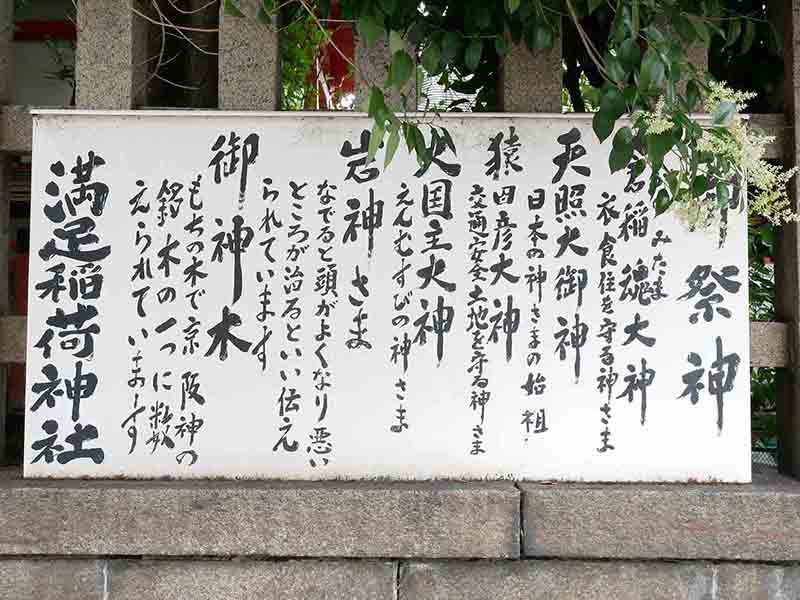 祭神
稲魂大神
みたま
衣食住を守る神さま
天照大御神
日本の神さまの始祖
猿田彦大神
交通安全土地を守る神さま
大国主大神
えんむすびの神さま
岩神さま
なでると頭がよくなり悪い
ところが治るといい伝え
られています
御神木
もちの木で京阪神の
銘木の一つに数
えられています
満足稲荷神社